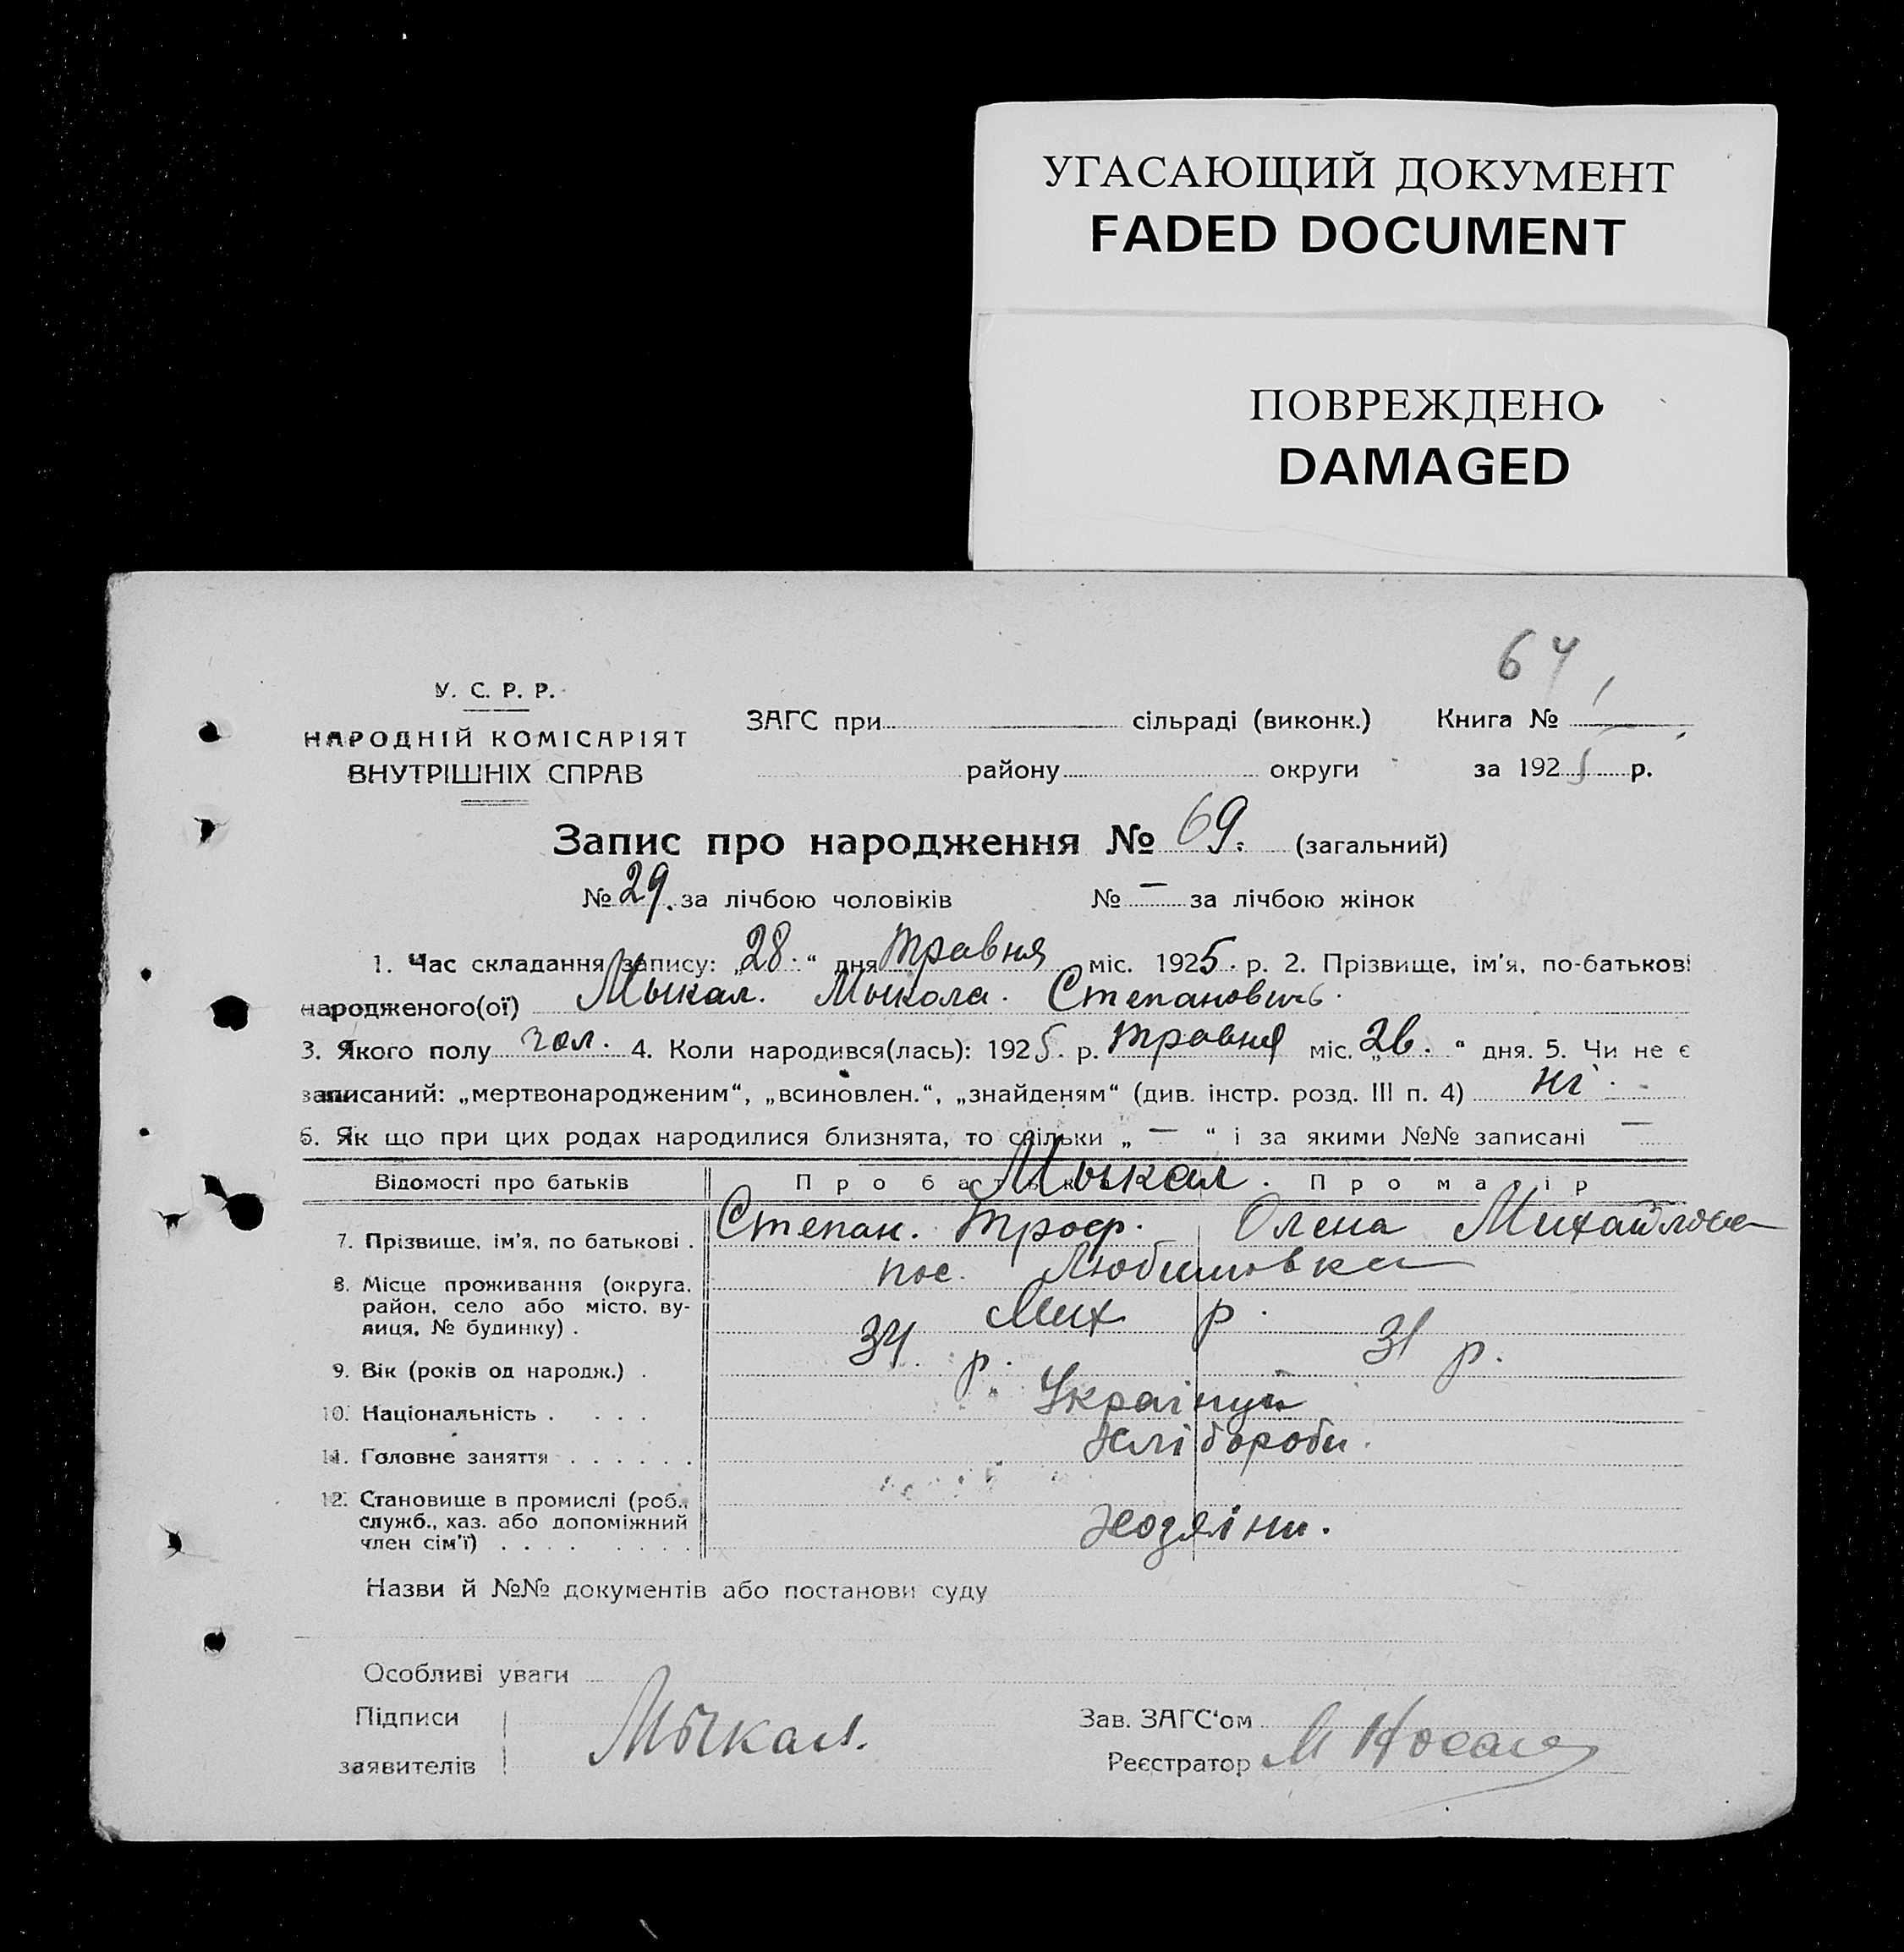 УГАСАЮЩИЙ ДОКУМЕНТ
FADED DOCUMENT
ПОВРЕЖДЕНО
DAMAGED
64
У. С. Р. Р.
НАРОДНІЙ КОМІСАРІЯТ
ВНУТРІШНІХ СПРАВ
ЗАГС при сільраді (виконк.) Книга №
району округи за 1925 р.
Запис про народження № 69. (загальний)
№ 29. за лічбою чоловіків № — за лічбою жінок
1. Час складання запису: „28.“ дня травня міс. 1925. р. 2. Прізвище, ім'я, по-батькові
народженого(ої) Мыкал. Мыкола. Степановичь.
3. Якого полу чол. 4. Коли народився(лась): 1925. р. травня міс. „26.“ дня. 5. Чи не є
записаний: „мертвонародженим“, „всиновлен.“, „знайденям“ (див. інстр. розд. III п. 4) ні.
6. Як що при цих родах народилися близнята, то скільки „ — “ і за якими №№ записані —
Відомості про батьків Про батька Мыкал. Про матір
7. Прізвище, ім'я, по батькові . Степан. Троф. Олена Михайлова
8. Місце проживання (округа, пос. Любимовка
район, село або місто, ву-
лиця, № будинку) . Мих р.
9. Вік (років од народж.) . 34 р. 31 р.
10. Національність . . . . Українці
11. Головне заняття . . . . . . Хлібороби.
12. Становище в промислі (роб.,
служб., хаз. або допоміжний
член сім'ї) . . . . . . . . Хозяіни.
Назви й №№ документів або постанови суду
Особливі уваги
Підписи
заявителів Мыкал.
Зав. ЗАГС'ом
Реєстратор М Носаль